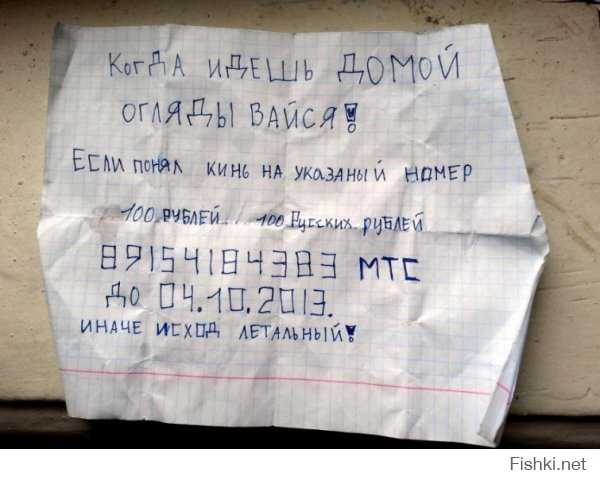 КогДА иДЕШЬ ДОМОЙ
ОГЛЯДЫ ВАЙСЯ!
ЕСЛИ ПОНЯЛ КИНЬ НА УКАЗАНЫЙ НОМЕР
100 РУБЛЕЙ... 100 Русских РУБЛЕЙ
89154184383 МТС
ДО 04.10.2013.
ИНАЧЕ ИСХОД ЛЕТАЛЬНЫЙ!
Fishki.net